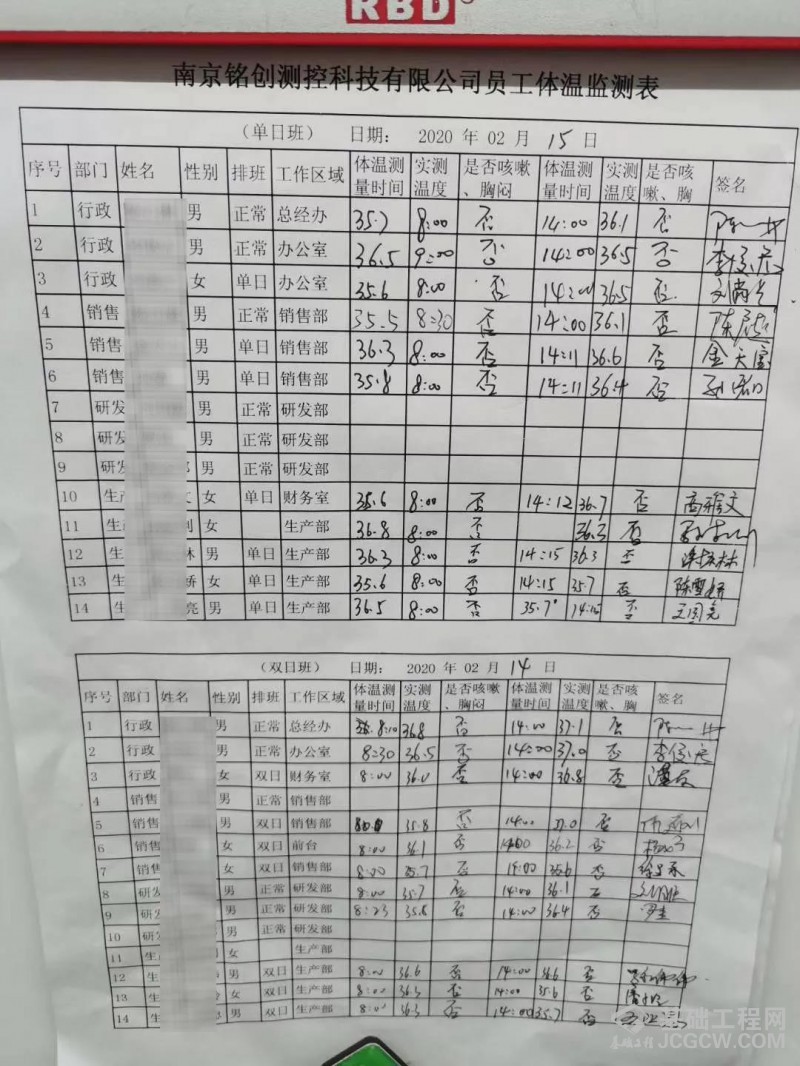 RBD
南京铭创测控科技有限公司员工体温监测表
（单日班） 日期： 2020 年 02 月 15 日
序号 部门 姓名 性别 排班 工作区域 体温测量时间 实测温度 是否咳嗽、胸闷 体温测量时间 实测温度 是否咳嗽、胸 签名
1 行政 男 正常 总经办 35.7 8:00 否 14:00 36.1 否
2 行政 男 正常 办公室 36.5 9:00 否 14:00 36.5 否
3 行政 女 单日 办公室 35.6 8:00 否 14:00 36.5 否
4 销售 男 正常 销售部 35.5 8:30 否 14:00 36.1 否
5 销售 男 单日 销售部 36.3 8:00 否 14:11 36.6 否
6 销售 男 单日 销售部 35.8 8:00 否 14:11 36.4 否
7 研发 男 正常 研发部
8 研发 男 正常 研发部
9 研发 男 正常 研发部
10 生产 女 单日 财务室 35.6 8:00 否 14:12 36.7 否
11 生产 女 生产部 36.8 8:00 否 36.3 否
12 生产 林 男 单日 生产部 36.3 8:00 否 14:15 36.3 否
13 生 娇 女 单日 生产部 35.6 8:00 否 14:15 35.7 否
14 生 亮 男 单日 生产部 36.5 8:00 否 35.7° 否
（双日班） 日期： 2020 年 02 月 14 日
序号 部门 姓名 性别 排班 工作区域 体温测量时间 实测温度 是否咳嗽、胸闷 体温测量时间 实测温度 是否咳嗽、胸 签名
1 行政 男 正常 总经办 8:10 36.8 否 14:00 37.1 否
2 行政 男 正常 办公室 8:30 36.5 否 14:00 37.0 否
3 行政 女 双日 财务室 8:00 36.0 否 14:00 36.8 否
4 销售 男 正常 销售部
5 销售 男 双日 销售部 35.8 否 14:00 37.0 否
6 销售 女 双日 前台 8:00 36.1 否 14:00 36.2 否
7 销售 女 双日 销售部 8:00 35.7 否 14:00 35.6 否
8 研发 男 正常 研发部 8:00 35.7 否 14:00 36.1 否
9 研发 男 正常 研发部 8:23 35.8 否 14:00 36.4 否
10 研发 男 正常 研发部
11 生 女 生产部
12 生 男 双日 生产部 8:00 36.6 否 14:00 36.6 否
13 生 女 双日 生产部 8:00 36.3 否 14:00 35.6 否
14 生 男 双日 生产部 8:00 36.3 否 14:00 35.7 否
基础工程网
基础工程 JCGCW.COM